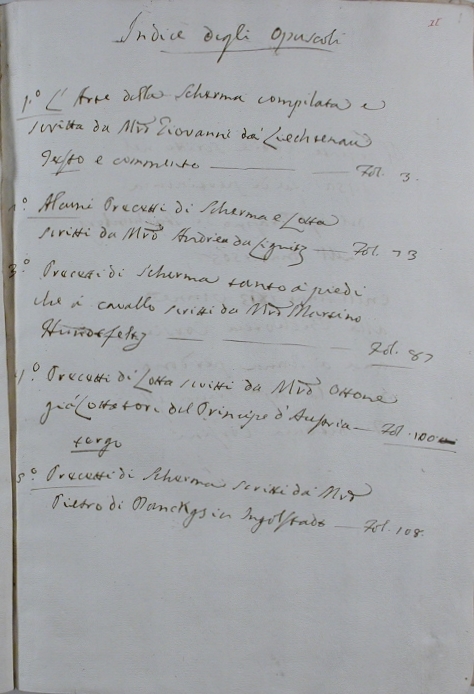 Indice degli Opuscoli
1.° L'Arte della Scherma compilata e
scritta da Mrõ Giovanni da Liechtenau
Testo e commento — Fol. 3.
2.° Alcuni Precetti di Scherma e Lotta
scritti da Mrõ Andrea da Lignitz — Fol. 73
3.° Precetti di Scherma tanto à piedi
che à cavallo scritti da Mrõ Martino
Hundsfeltz — Fol. 87
4.° Precetti di Lotta scritti da Mrõ Ottone
già Lottatore del Principe d'Austria — Fol. 100
tergo
5.° Precetti di Scherma scritti da Mrõ
Pietro di Danckgs in Ingolstadt — Fol. 108.